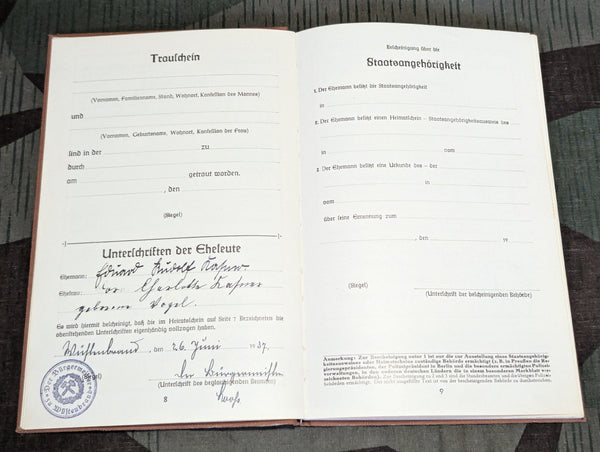 Trauschein
(Vornamen, Familienname, Stand, Wohnort, Konfession des Mannes)
und
(Vornamen, Geburtsname, Wohnort, Konfession der Frau)
sind in der zu
durch
am getraut worden.
, den
(Siegel)
Unterschriften der Eheleute
Ehemann: Eduard Rudolf
Ehefrau: Charlotte
geborene Vogel.
Es wird hiermit bescheinigt, daß die im Heimatschein auf Seite 7 Bezeichneten die
obenstehenden Unterschriften eigenhändig vollzogen haben.
Wüstenbrand, den 26. Juni 1937.
(Siegel) Der Bürgermeister
(Unterschrift des beglaubigenden Beamten)
Der Bürgermeister
Wüstenbrand
8
Bescheinigung über die
Staatsangehörigkeit
1. Der Ehemann besitzt die Staatsangehörigkeit
in
2. Der Ehemann besitzt einen Heimatschein – Staatsangehörigkeitsausweis des
in vom
3. Der Ehemann besitzt eine Urkunde des – der
in
vom
über seine Ernennung zum
, den 19
(Siegel)
(Unterschrift der bescheinigenden Behörde)
Anmerkung: Zur Bescheinigung unter 1 ist nur die zur Ausstellung eines Staatsangehörig-
keitsausweises oder Heimatscheins zuständige Behörde ermächtigt (z. B. in Preußen die Re-
gierungspräsidenten, der Polizeipräsident in Berlin und die besonders ermächtigten Polizei-
verwaltungen, in den anderen deutschen Ländern die in einem besonderen Merkblatt ver-
zeichneten Behörden). Zur Bescheinigung zu 2 und 3 sind die Standesbeamten und die übrigen Polizei-
behörden ermächtigt. Der nicht ausgefüllte Text ist von der bescheinigenden Behörde zu durchstreichen.
9